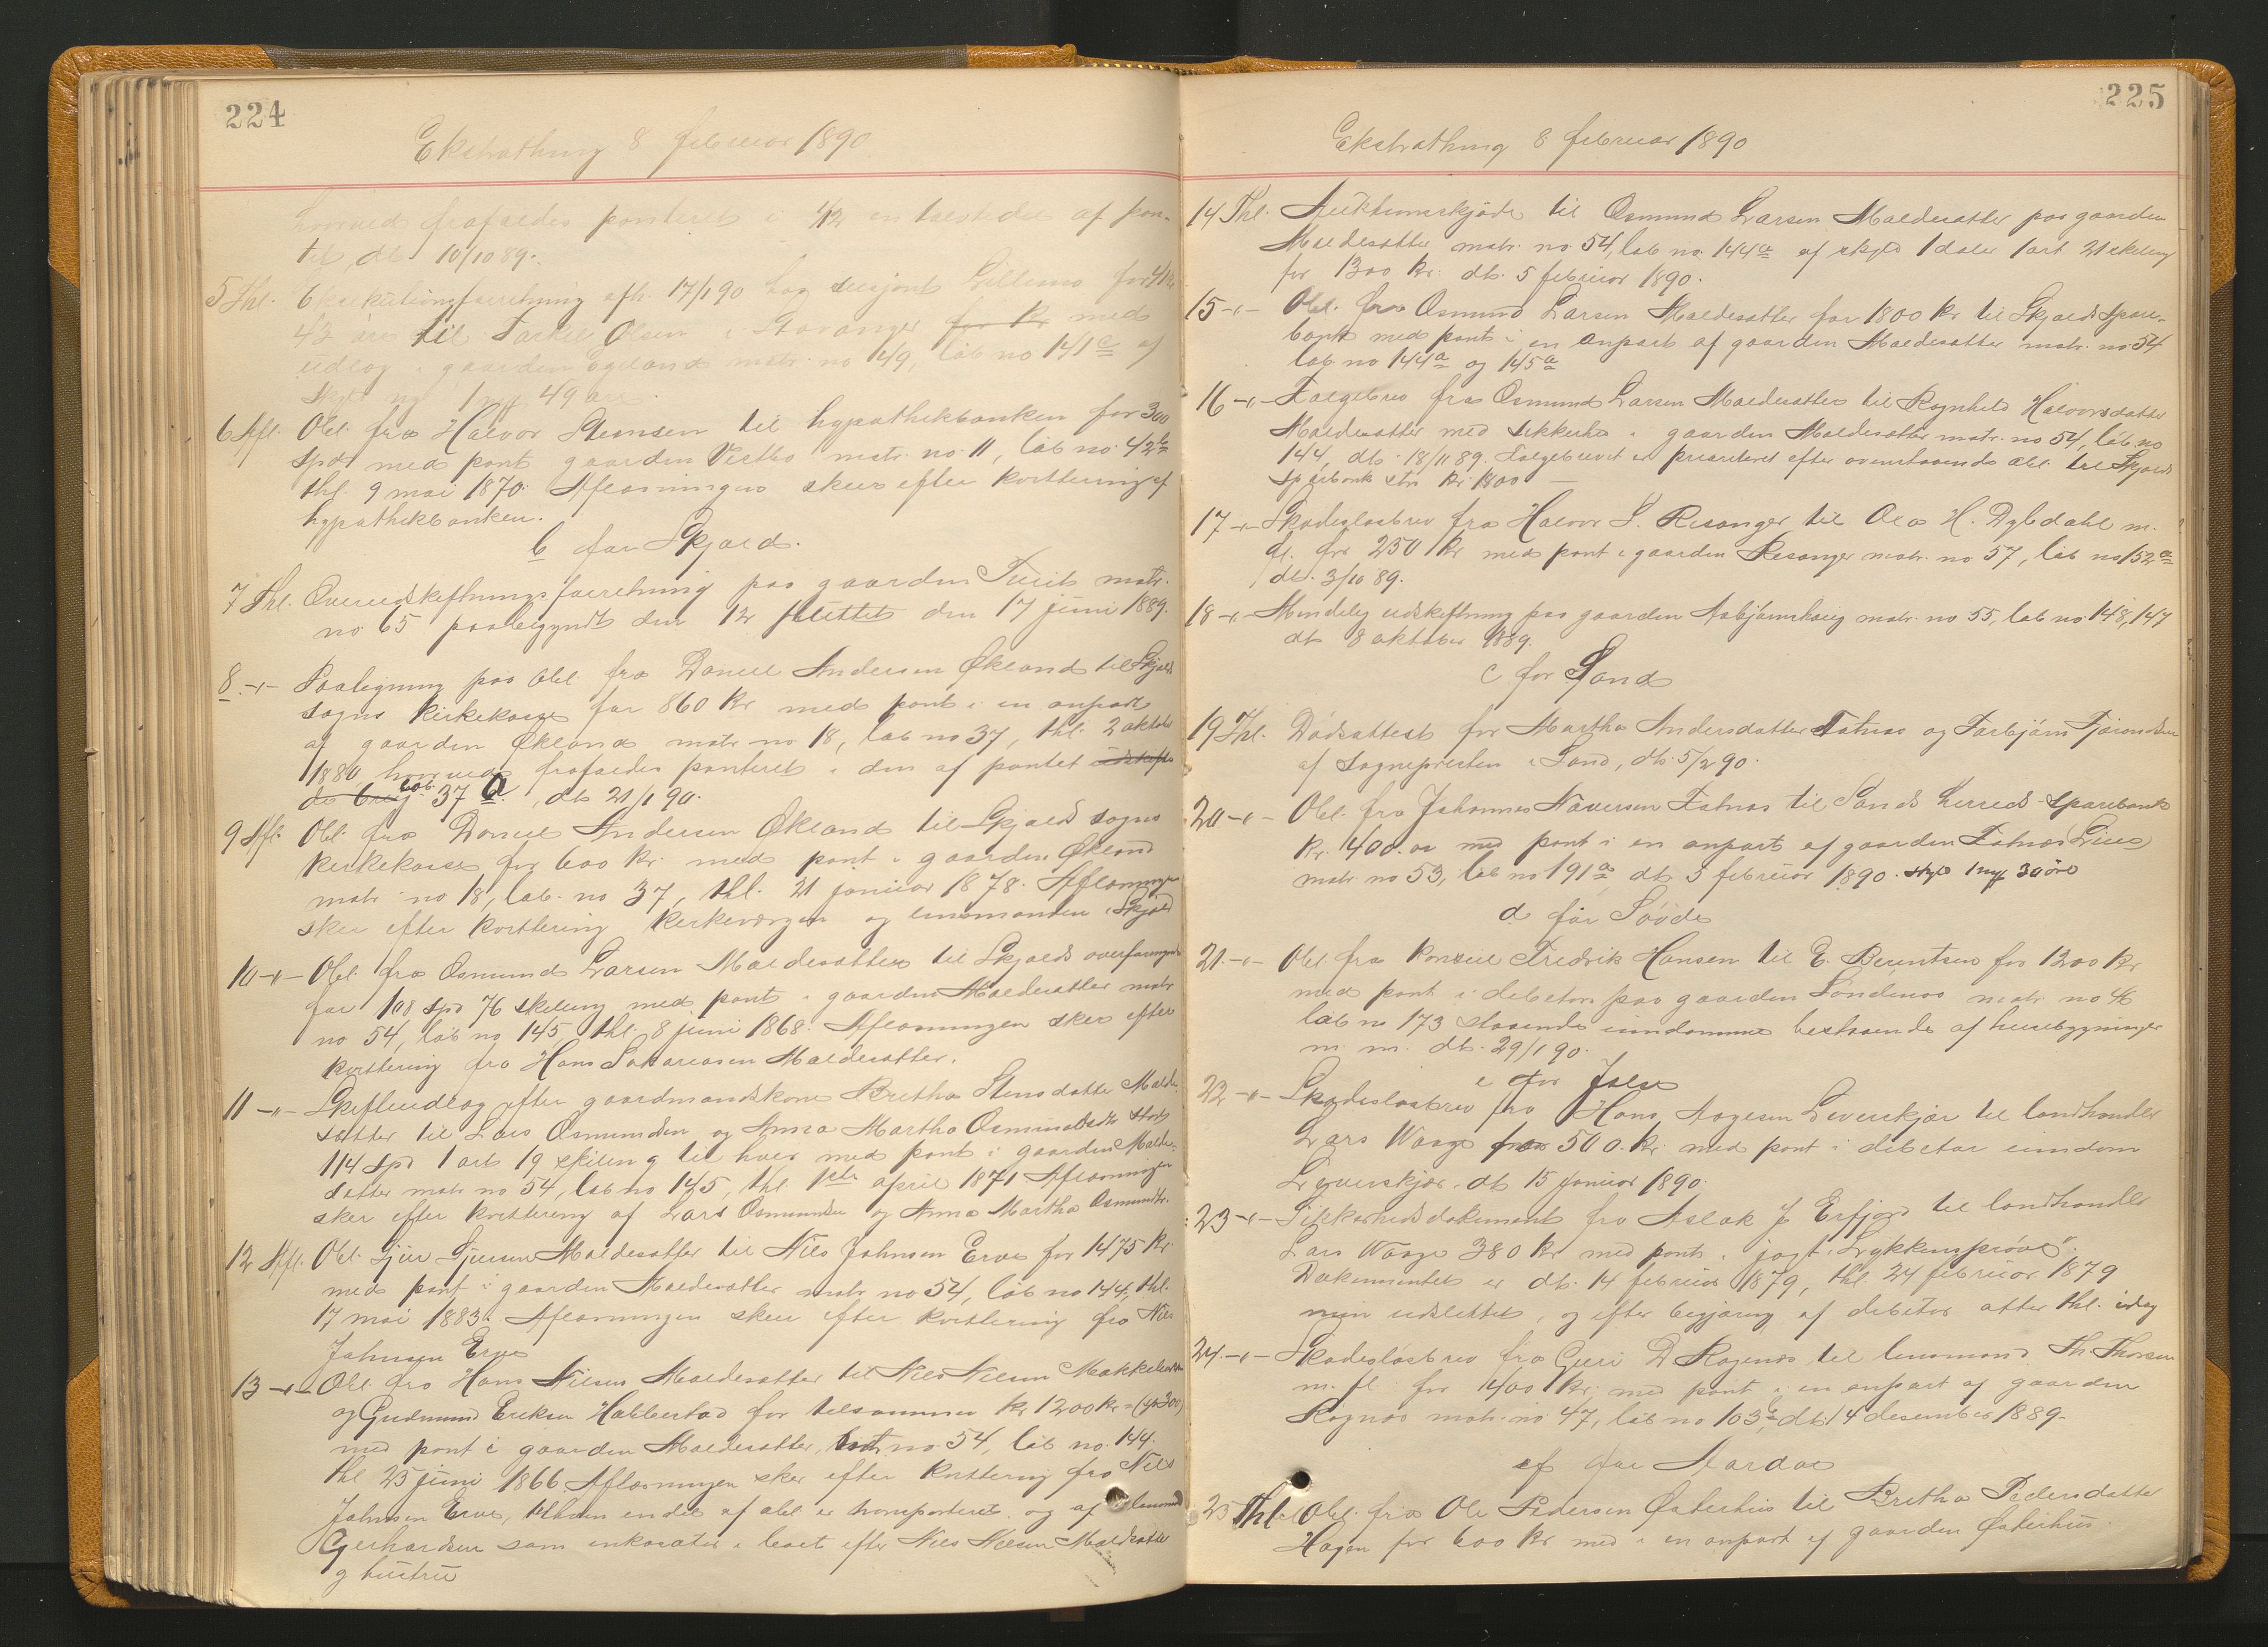 224
Ekstrathing 8 februar 1890
hvorved frafaldes panteret i 1/12 en tolvtedel af pan-
tet, dt. 10/10 89.
5 Thl. Eksekutionsforretning afh. 17/1 90 hos for 41 kr
43 øre til Torkel Olsen i Stavanger for kr med
udlæg i gaarden matr. no 49, løb no 141 c af
skyld ny 1 mrk 49 øre.
6 Afl. Obl. fra Halvor Stensen til hypothekbanken for 300
spd. med pant gaarden Vestbø matr. no 11, løb no. 42 b
thl. 9 mai 1870. Aflæsningen skeer efter kvittering af
hypothekbanken.
b for Skjold.
7 Thl. Overudskiftningsforretning paa gaarden Tveit matr.
no 65 paabegyndt den 12 sluttet den 17 juni 1889.
8 -"- Paategning paa obl. fra Daniel Andersen Økland til Skjolds
sogns kirkekasse for 860 kr. med pant i en anpart
af gaarden Økland matr. no 18, løb no 37, thl. 2 oktober
1880 hvorved frafaldes panteret i den af pantet udskifte
de brug løb. 37 a, dt 21/1 90.
9 Afl. Obl. fra Daniel Andersen Økland til Skjold sogns
kirkekasse for 600 kr. med pant i gaarden Økland
matr. no 18, løb. no 37, thl. 21 januar 1878. Aflæsningen
sker efter kvittering kirkeværgen og lensmanden i Skjold
10 -"- Obl. fra Osmund Larsen Maldesætter til Skjolds overformynd
for 108 spd 76 skilling med pant i gaarden Maldesætter matr
no 54, løb no 145, thl. 8 juni 1868. Aflæsningen sker efter
kvittering fra Hans Sakariasen Maldesætter.
11 -"- Skifteudlæg efter gaardmandskone Bretha Stensdatter Malde-
sætter til Lars Osmundsen og Anna Martha Osmundsdtr stort
114 spd 1 ort 19 skilling til hver med pant i gaarden Malde-
sætter matr no 54, løb no 145, thl. 1ste april 1871 Aflæsningen
sker efter kvittering af Lars Osmundsen og Anna Martha Osmundtr.
12 Afl. Obl. Gjer Gjersen Maldesætter til Nils Johnsen Erve for 1475 kr.
med pant i gaarden Maldesætter matr. no 54, løb no 144, thl.
17 mai 1883. Aflæsningen skeer efter kvittering fra Nils
Johnsen Erve
13 -"- Obl. fra Hans Nilsen Maldesætter til Nils Nilsen
og Gudmund Eriksen Habberstad for tilsammen kr 1200 kr = (spd 300)
med pant i gaarden Maldesætter, no. 54, løb no. 144.
thl 25 juni 1866. Aflæsningen sker efter kvittering fra Nils
Johnsen Erve, til hvem en del af obl. er transporteret, og af
Gerhardsen som inkasator i boet efter Nils Nilsen Maldesætter
og hustru
225
Ekstrathing 8 februar 1890
14 Thl. Auktionsskjøde til Osmund Larsen Maldesætter paa gaarden
Maldesætter matr. no 54, løb no. 144 a af skyld 1 daler 1 ort 21 skilling
for 1300 kr. dt. 5 februar 1890.
15 -"- Obl. fra Osmund Larsen Maldesætter for 1800 kr til Skjolds Spare-
bank med pant i en anpart af gaarden Maldesætter matr. no 54
løb no 144 a og 145 a
16 -"- Følgebrev fra Osmund Larsen Maldesætter til Ragnhild Halvorsdatter
Maldesætter med sikkerhed i gaarden Maldesætter matr. no 54, løb no
144, dt. 18/11 89. Følgebrevet er prioriteret efter ovenstaaende obl. til Skjolds
Sparebank stor kr. 1800 —
17 -"- Skadesløsbrev fra Halvor S. Risanger til Ola H. Dybdahl m.
fl. for 250 kr med pant i gaarden Risanger matr. no 57, løb no 152 a
dt. 3/10 89.
18 -"- Mindelig udskiftning paa gaarden Asbjørnhaug matr. no 55, løb no. 148, 147
dt 8 oktober 1889.
c for Sand
19 Thl. Dødsattest for Martha Andersdatter Fatnes og Torbjørn
af sognepresten i Sand, dt. 5/2 90.
20 -"- Obl. fra Johannes Fatnes til Sands herreds sparebank
Kr. 400.00 med pant i en anpart af gaarden Fatnes Lien
matr. no 53, løb no 191 a dt. 5 februar 1890. skyld 1 mrk 30 øre
d for Søvde
21 -"- Obl fra konsul Fredrik Hansen til E. Berentsen for 1200 kr
med pant i debitors paa gaarden Søndenaa matr. no 46
løb no 173 staaende eiendomme bestaaende af husebygninger
m. m. dt. 29/1 90.
e for Jelse
22 -"- Skadesløsbrev fra Hans Aagesen Leverskjær til landhandler
Lars Waage for 500. kr. med pant i debitors eiendom
Leverskjær. dt 15 januar 1890.
23 -"- Sikkerhedsdokument fra Aslak J Erfjord til landhandler
Lars Waage 380 kr med pant i jagt "Lykkensprøve".
Dokumentet er dt. 14 februar 1879, thl. 24 februar 1879
men udslettet, og efter begjæring af debitor atter thl. idag
24 -"- Skadesløsbrev fra Guri D Ragnøs til lensmand Th. Thorsen
m. fl. for 400 kr. med pant i en anpart af gaarden
Ragnøs matr. no 47, løb no 103, dt. 14 desember 1889.
f for Aardal
25 Thl. Obl. fra Ole Pedersen Østerhus til Bretha Pedersdatter
Hagen for 600 kr med i en anpart af gaarden Østerhus